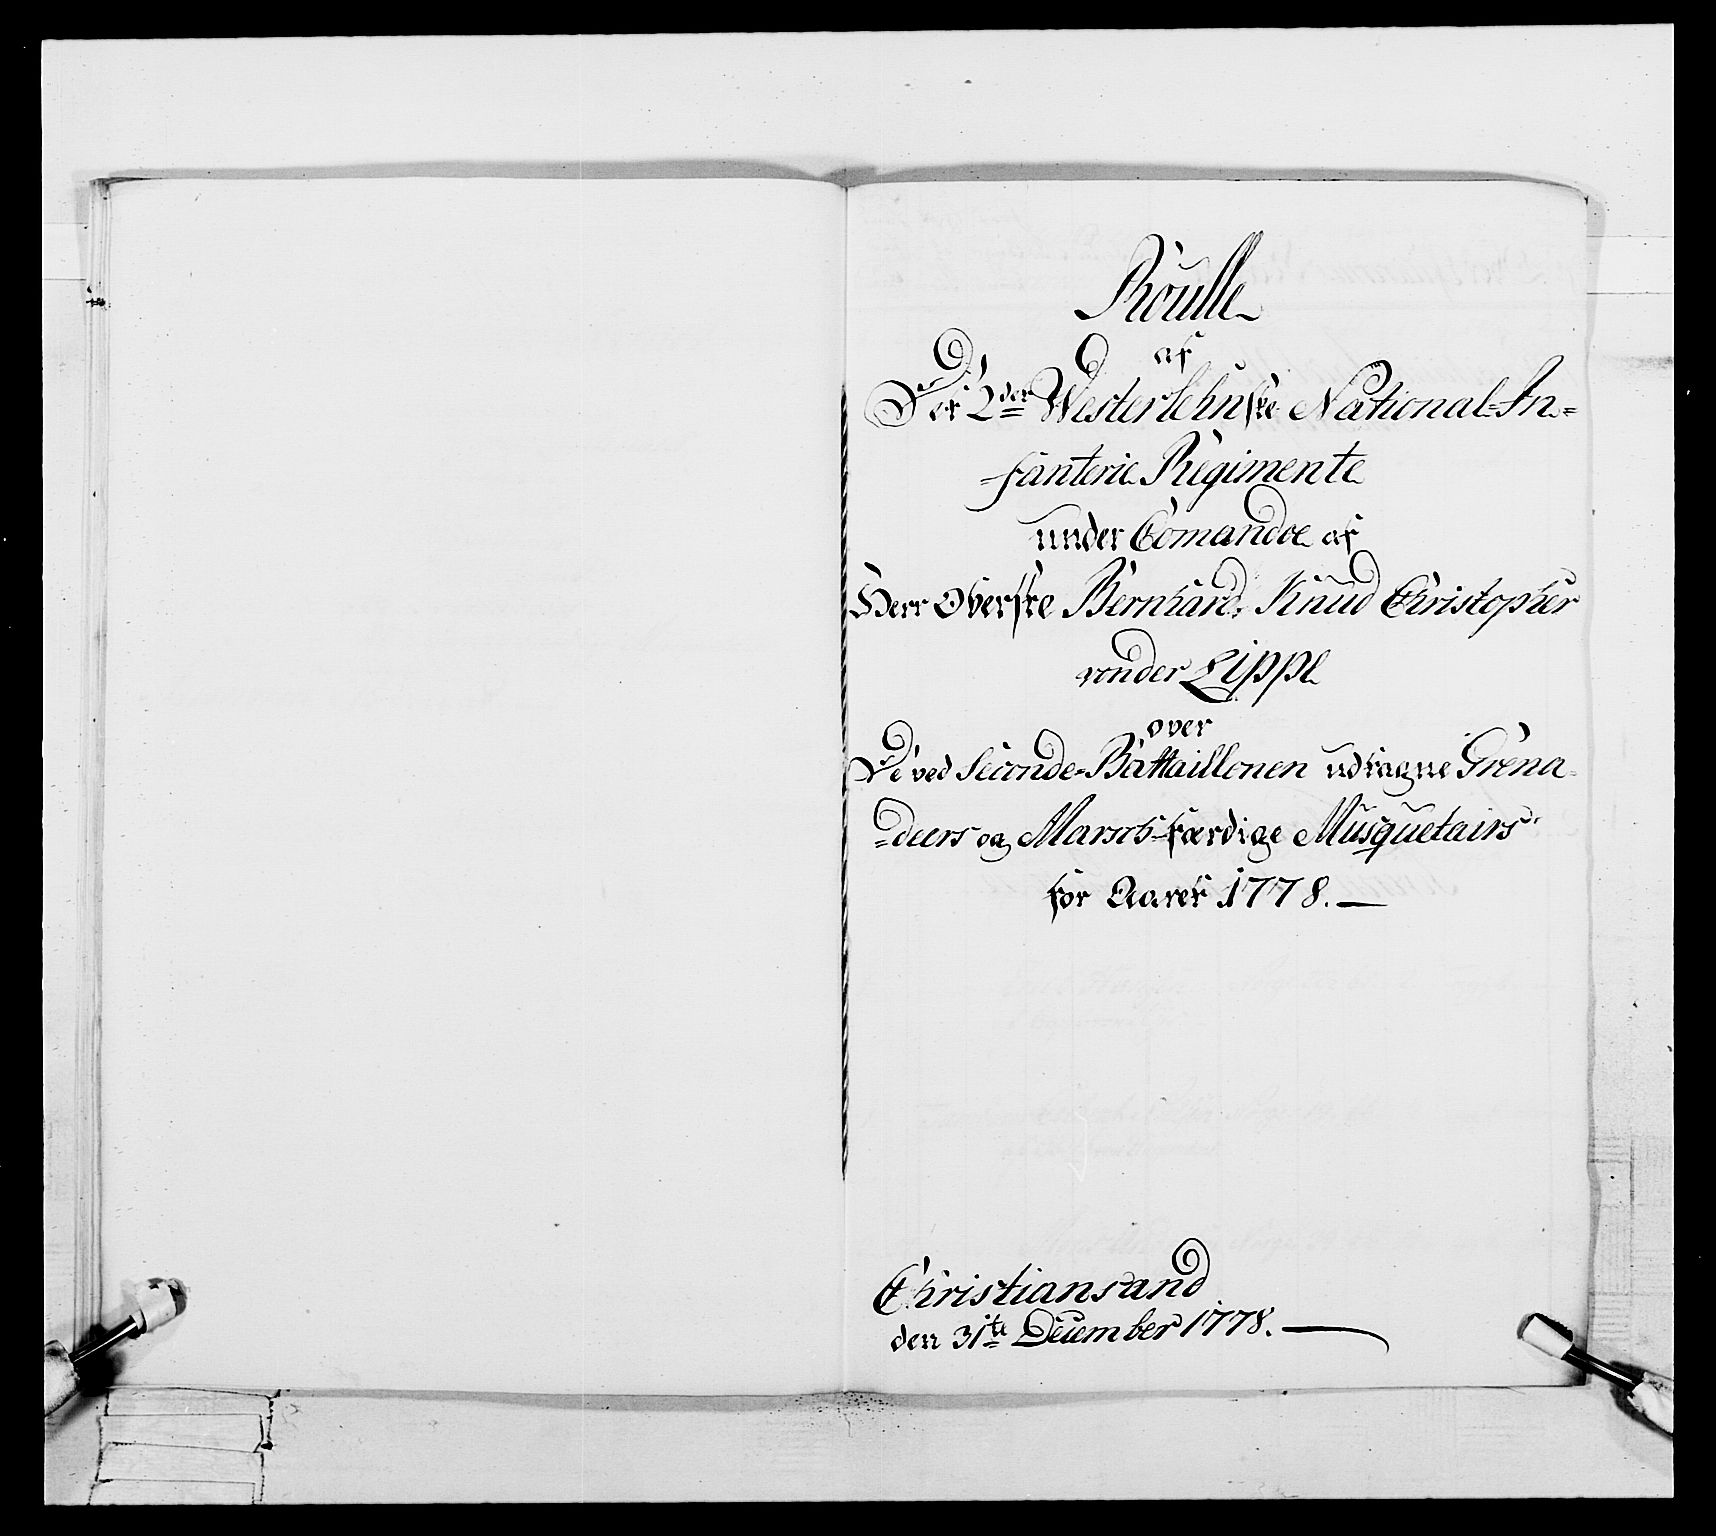 Roulle
af
Det 2den Westerlehnske National-In=
=fanterie Regimente
under Comandoe af
Herr Oberste Bernhard Knud Christopher
vonder Lippe
over
De ved Seconde-Battaillonen udtagne Grena=
=deers og Marsch-færdige Musquetairs
for Aaret 1778.
Christiansand
den 31te December 1778.